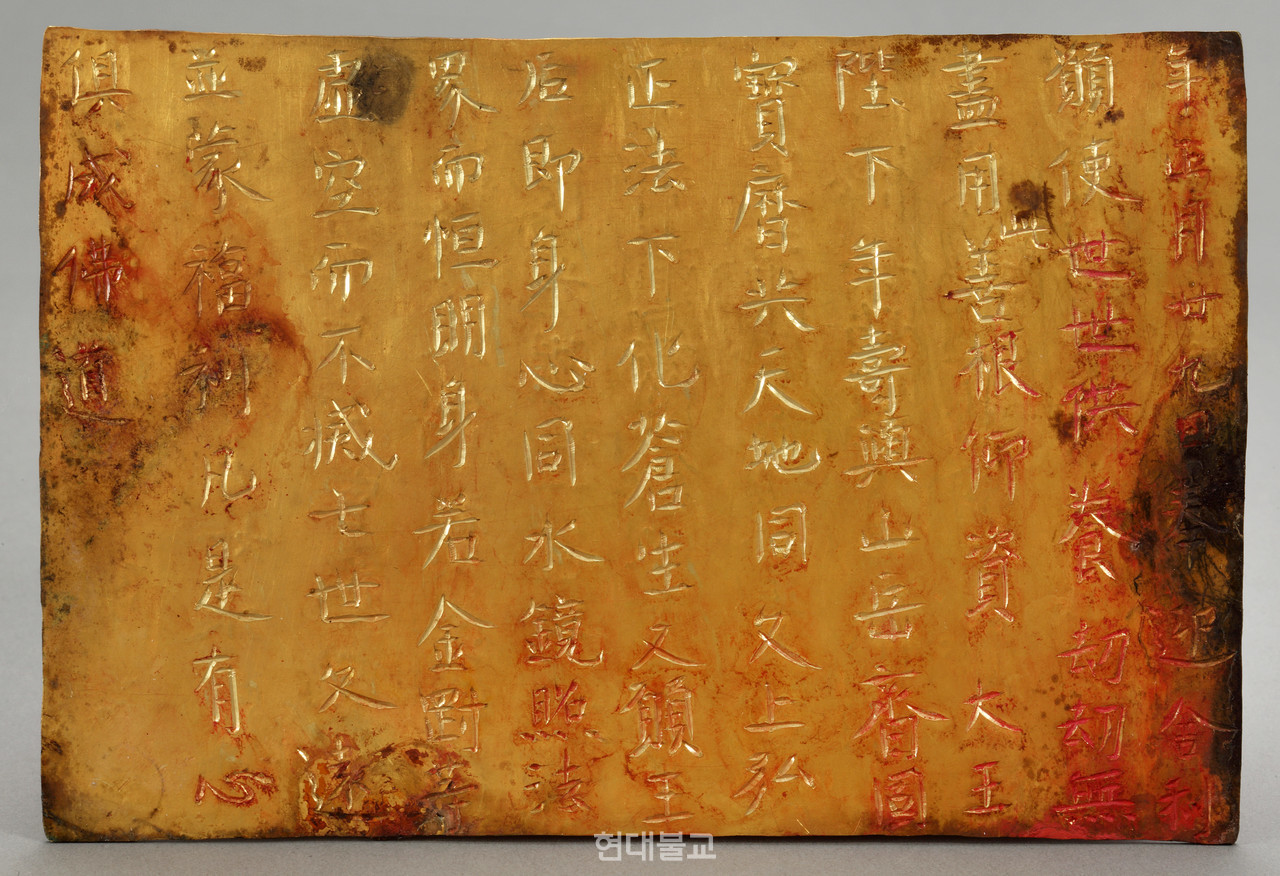 年正月廿九日奉迎舍利
願使世世供養劫劫無
盡用此善根仰資大王
陛下年壽與山岳齊固
寶曆共天地同久上弘
正法下化蒼生又願王
后即身心同水鏡照法
界而恒明身若金剛等
虛空而不滅七世久遠
並蒙福利凡是有心
俱成佛道
현대불교